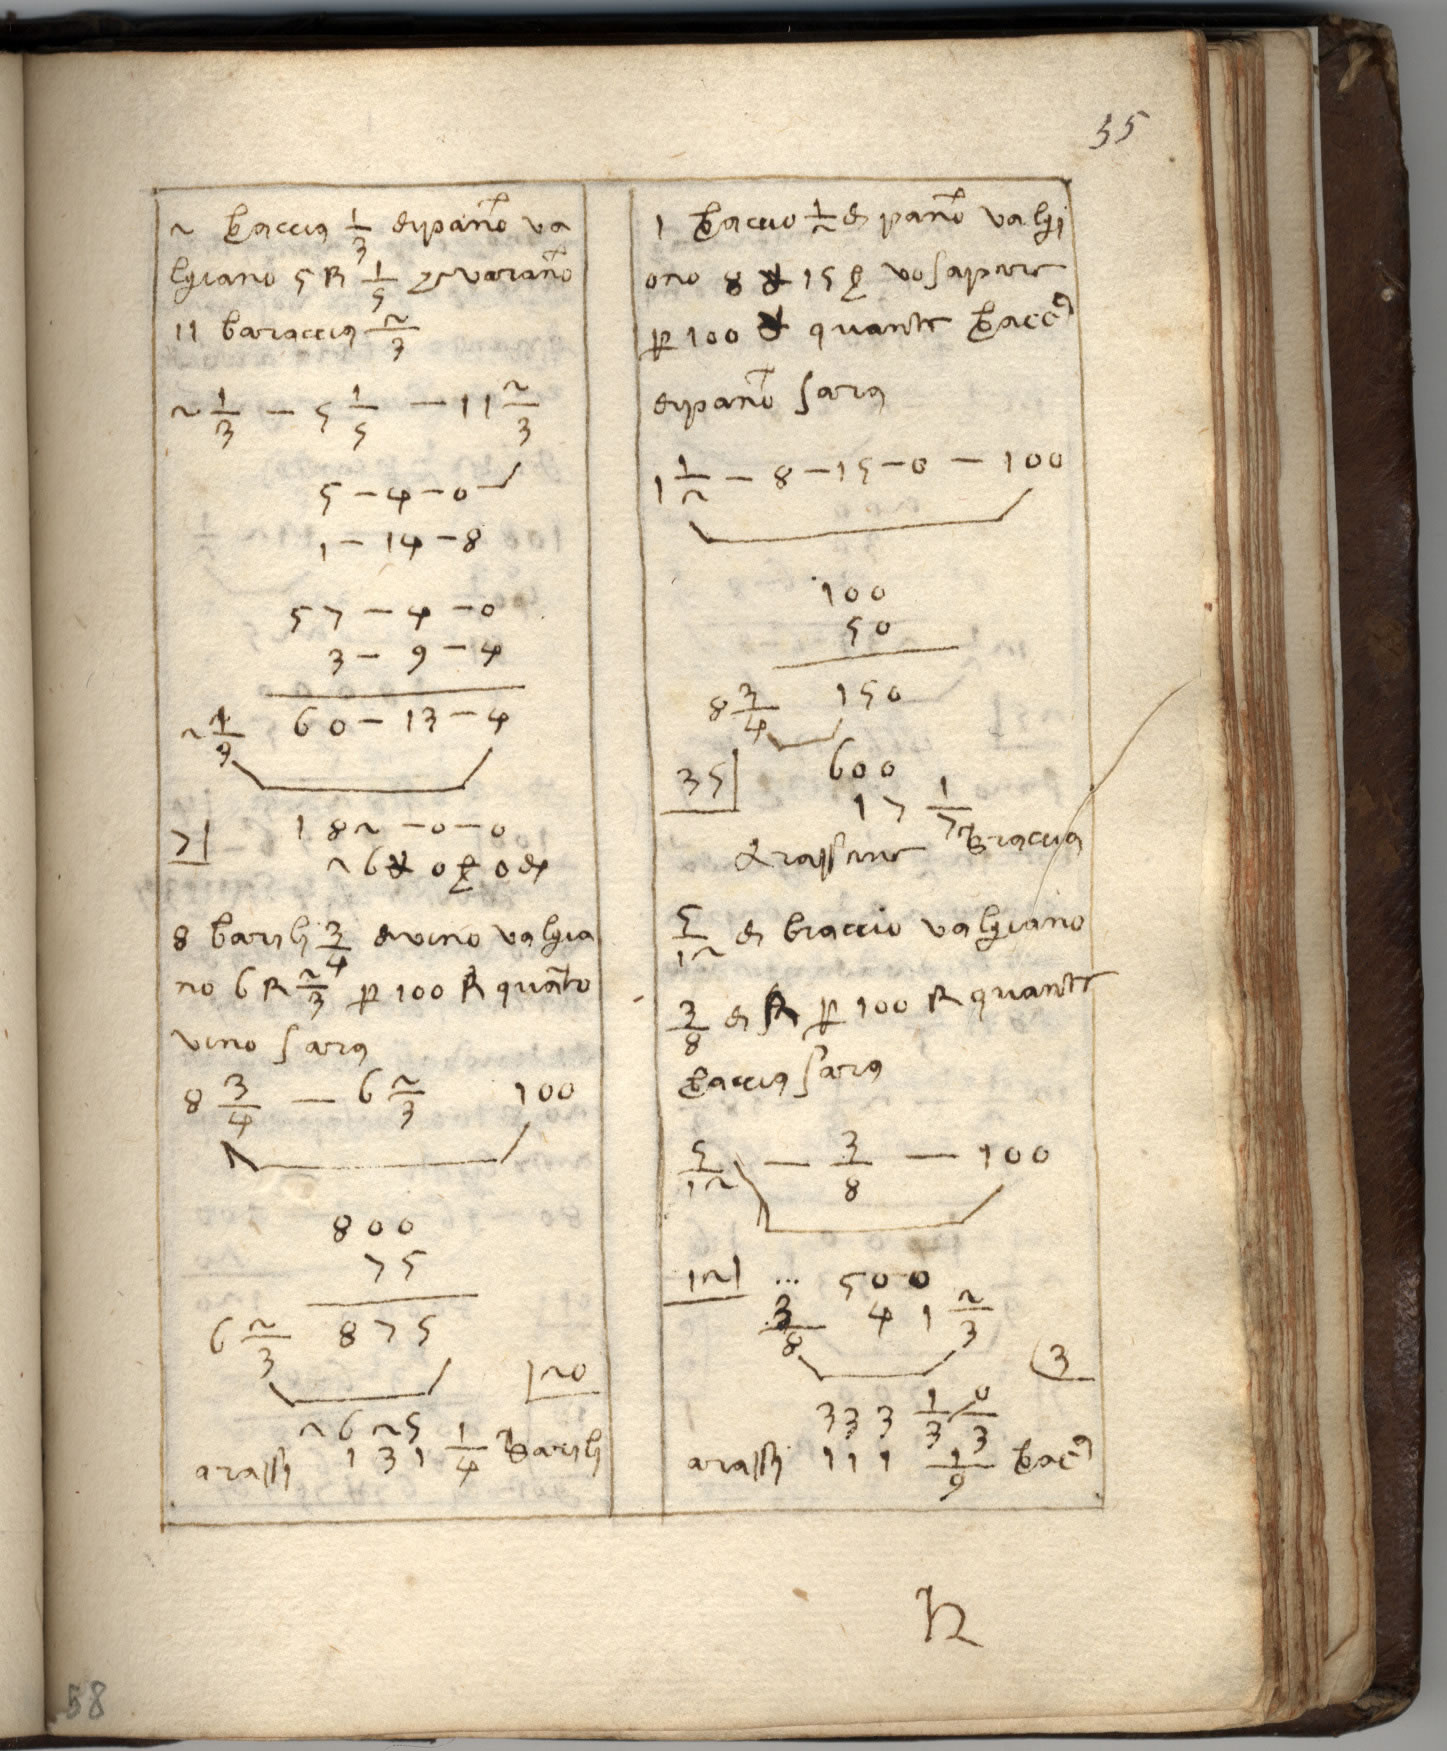 35
2 braccia 1/3 di pano va
lgiano 5 R 1/5 varano
11 baraccia 2/3
2 1/3 — 5 1/5 — 11 2/3
5 — 4 — 0
1 — 14 — 8
57 — 4 — 0
3 — 9 — 4
2 1/3 60 — 13 — 4
7 182 — 0 — 0
26 0 0
8 barili 3/4 di vino valgia
no 6 R 2/3 p 100 R quato
vino sara
8 3/4 — 6 2/3 100
800
75
6 2/3 875
20
2625
arassi 131 1/4 Barili
1 bracio 1/2 di pano valgi
ono 8 15 vo sapere
p 100 quante bracc
di pano sara
1 1/2 — 8 — 15 — 0 — 100
100
50
8 3/4 150
35 600
17 1/7 Braccia
5/12 di braccio valgiano
3/8 di R p 100 R quante
braccia sara
5/12 — 3/8 — 100
12 ... 500
3/8 41 2/3
3
333 1/3 0/3
arassi 111 1/9 brac
58